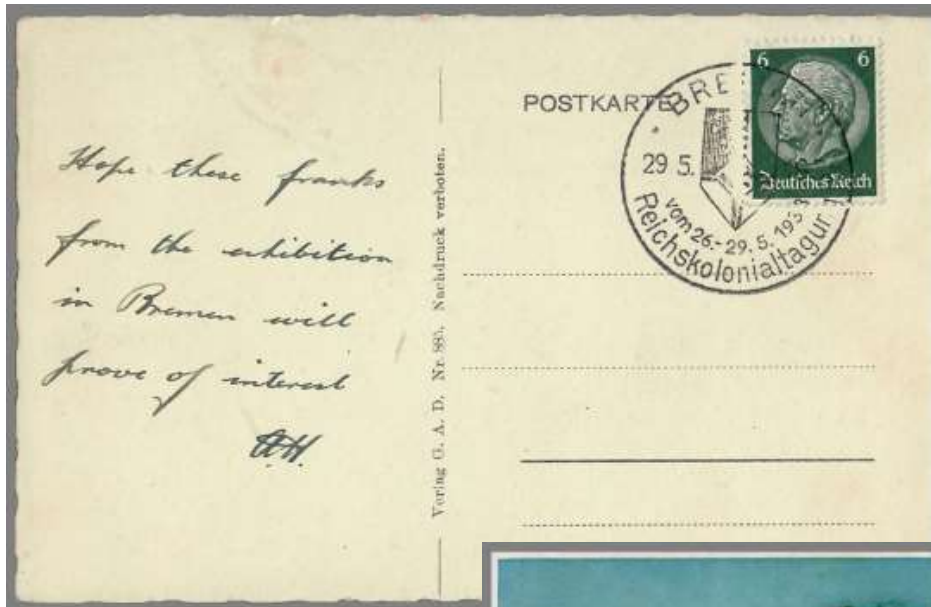 Hope these franks
from the exhibition
in Bremen will
prove of interest
A.H.
Verlag G. A. D. Nr. 885. Nachdruck verboten.
POSTKARTE
BRE
29 5.
vom 26.-29.5.193
Reichskolonialtagun
6 6
Deutsches Reich